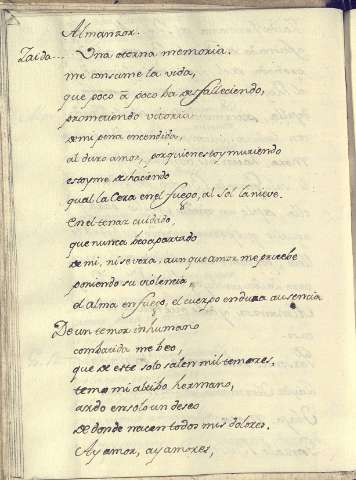 Almanzor.
Zaida... Una eterna memoria.
me consume la vida,
que poco à poco ba desfalleciendo,
prometiendo vitoria
de mi pena encendida,
al duro amor, por quien estoy muriendo
estoyme deshaciendo
qual la Cera en el fuego, al sol la nieve.
En el tenaz cuidado
que nunca beo apartado
de mi, ni se vera, aunque amor me pruebe
poniendo su violencia,
el alma en fuego, el cuerpo en dura ausencia
De un temor inhumano
combatida me beo,
que de este solo salen mil temores,
temo mi altibo hermano,
ardo en solo un deseo
de donde nacen todos mis dolores.
Ay amor, ay amores,